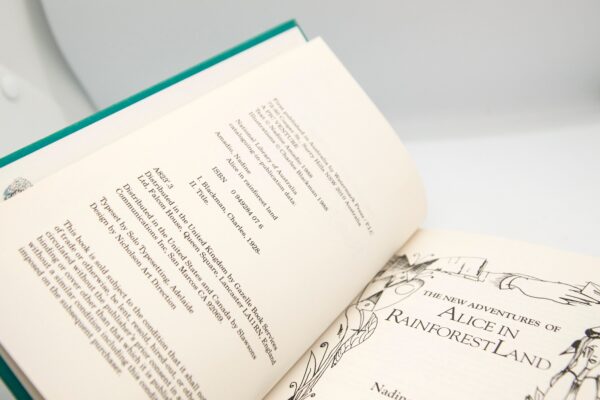 First published in Australia by
72-80 Cooper St, Surry Hills NSW 2010 Australia
A PIC VENTURE
Text © Nadine Amadio 1988
Illustrations © Charles Blackman 1988
National Library of Australia
cataloguing-in-publication data.
Amadio, Nadine
Alice in rainforest land
ISBN 0 949284 07 6
I. Blackman, Charles, 1928.
II. Title.
A823'.3
Distributed in the United Kingdom by Gazelle Book Services
Ltd, Falcon House, Queen Square, Lancaster LA1 1RN, England
Distributed in the United States and Canada by Slawsons
Communications Inc, San Marcos CA 92069.
Typeset by Solo Typesetting, Adelaide
Design by Nicholson Art Direction
This book is sold subject to the condition that it shall not
of trade or otherwise, be lent, resold, hired out, or other
circulated without the publisher's prior consent in a
binding or cover other than that in which it is publis
without a similar condition including this condition
imposed on the subsequent purchaser.
THE NEW ADVENTURES OF
ALICE IN
RAINFORESTLAND
Nadin